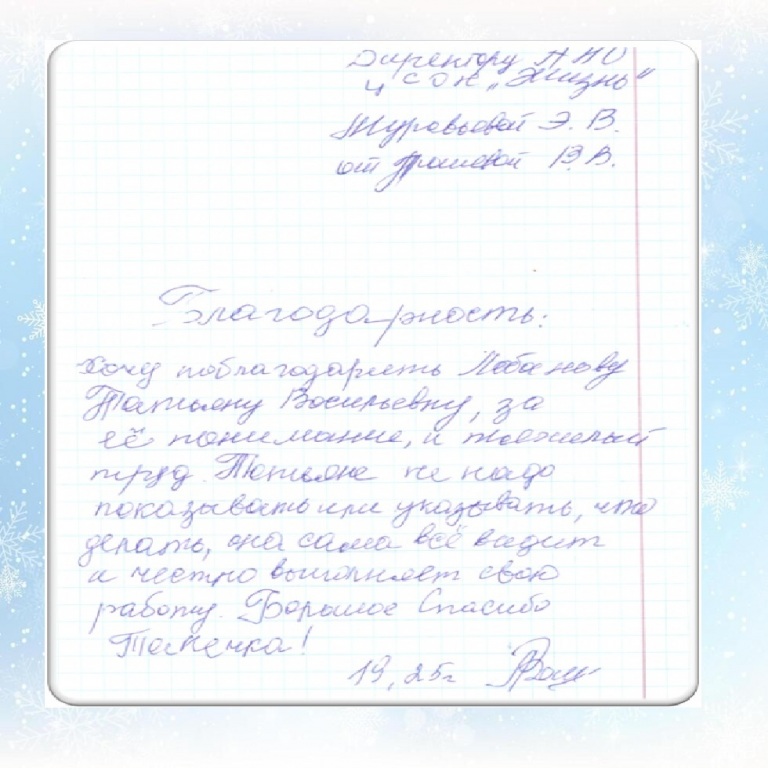 Директору АНО
ЦСОН „Жизнь"
Журавьёвой Э. В.
от В. В.
Благодарность:
Хочу поблагодарить Лобанову
Татьяну Васильевну, за
её понимание, и тяжёлый
труд. Татьяне не надо
показывать или указывать, что
делать, она сама всё видит
и честно выполняет свою
работу. Большое Спасибо
Танечка!
19, 25г